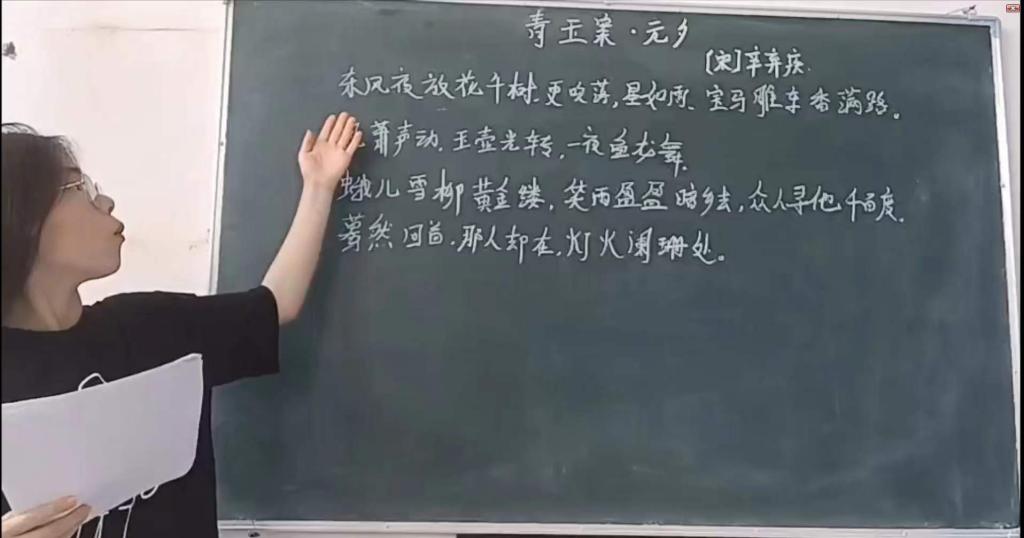 青玉案·元夕
[宋]辛弃疾.
东风夜放花千树.更吹落,星如雨.宝马雕车香满路。
箫声动.玉壶光转,一夜鱼龙舞.
蛾儿雪柳黄金缕,笑雨盈盈暗乡去,众人寻他千百度.
蓦然回首.那人却在,灯火阑珊处。